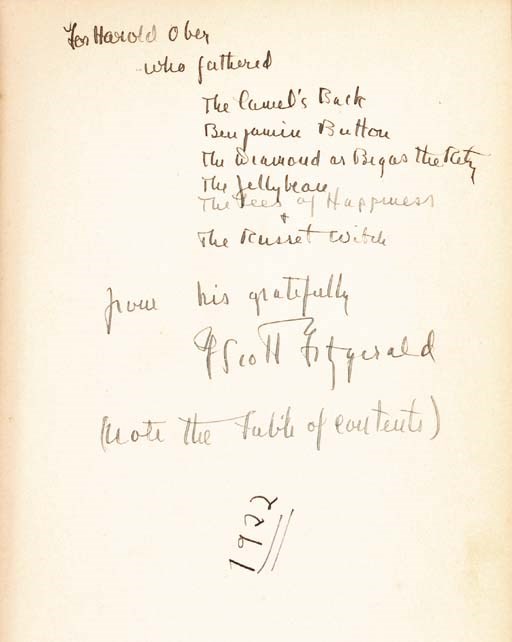 For Harold Ober
who fathered
The Camel's Back
Benjamin Button
The Diamond as Big as the Ritz
The Jellybean
The Lees of Happiness
+
The Russet Witch
from his gratefully
F Scott Fitzgerald
(note the table of contents)
1922